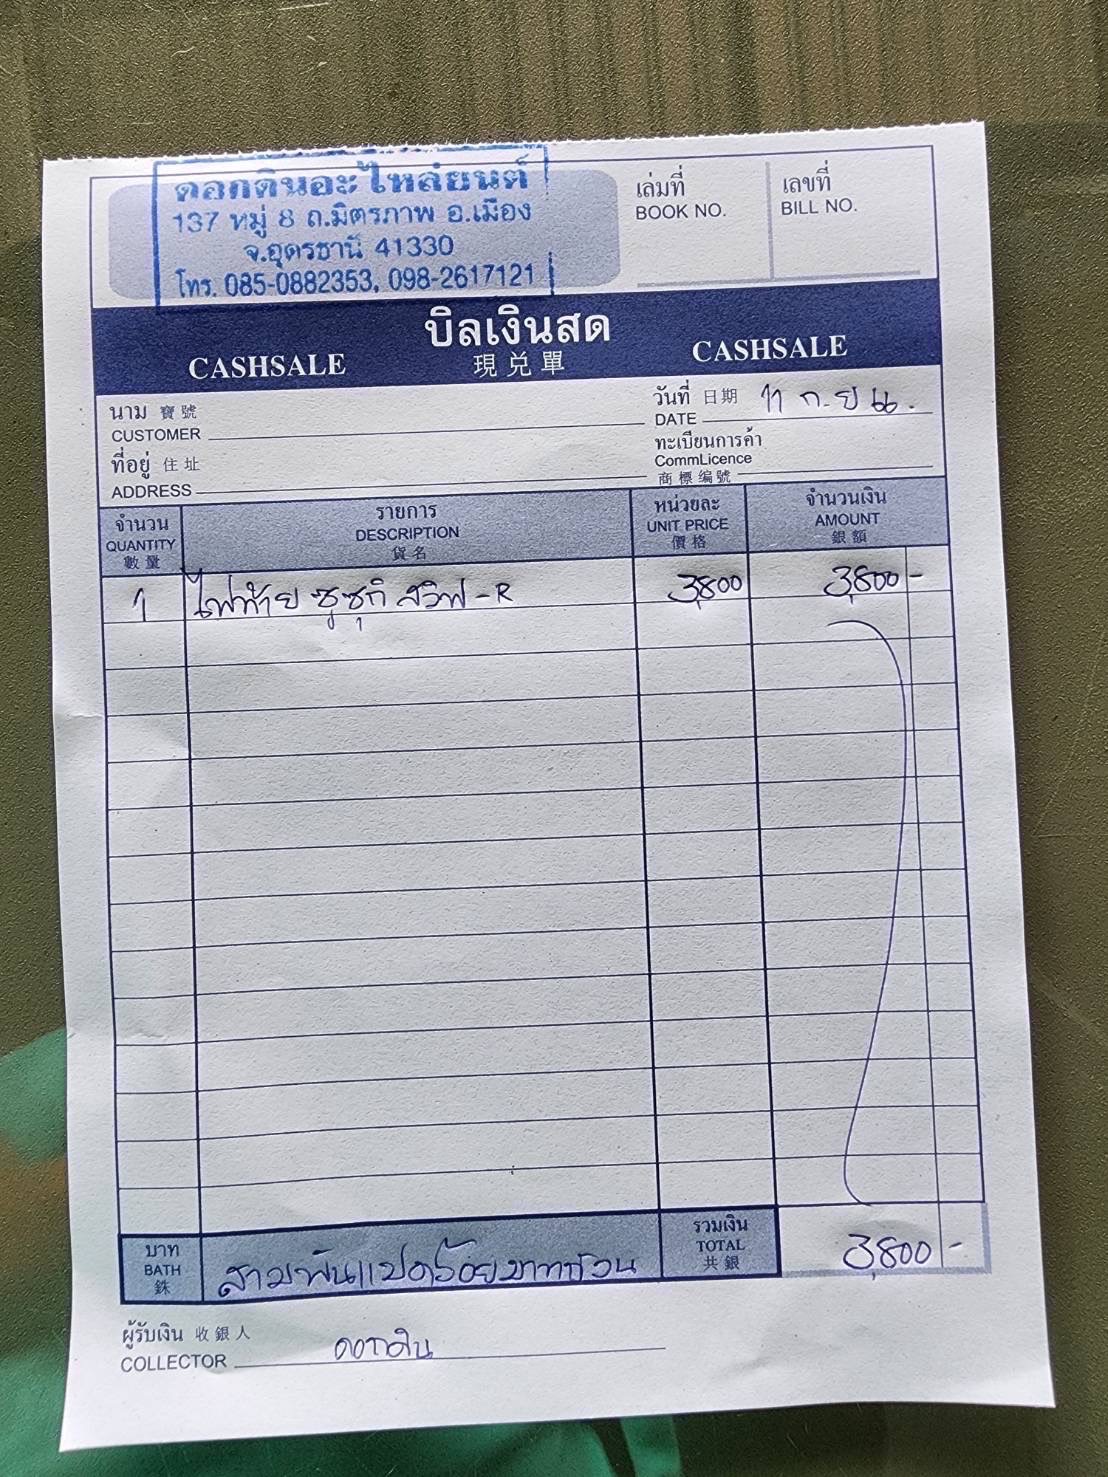 ดอกดินอะไหล่ยนต์
137 หมู่ 8 ถ.มิตรภาพ อ.เมือง
จ.อุดรธานี 41330
โทร. 085-0882353, 098-2617121
เล่มที่
BOOK NO.
เลขที่
BILL NO.
บิลเงินสด
CASHSALE 現兌單 CASHSALE
นาม 寶號
CUSTOMER
วันที่ 日期 11 ก.ย 66.
DATE
ที่อยู่ 住址
ADDRESS
ทะเบียนการค้า
CommLicence
商標编號
จำนวน
QUANTITY
數量
รายการ
DESCRIPTION
貨名
หน่วยละ
UNIT PRICE
價格
จำนวนเงิน
AMOUNT
銀額
1 ไฟท้าย ซูซุกิ สวิฟ - R 3,800 3,800 -
บาท
BATH
銖
สามพันแปดร้อยบาทถ้วน
รวมเงิน
TOTAL
共銀
3,800 -
ผู้รับเงิน 收銀人
COLLECTOR ดอกดิน